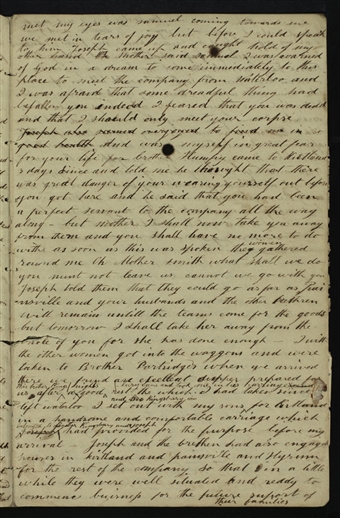 met my eyes was samuel coming towards me
we met in tears of joy but before I could speak
to him Joseph came up and caught hold of my
other hand Oh Mother said Samuel I was warned
of God in a dream to come immediately to this
place to meet the company from waterloo and
I was afraid that some dreadful thing had
befallen you indeed I feared that you was dead
and that I should only meet your corpse
Joseph also seemed overjoyed to find me in so
good health and was myself in great fear
for your life for brother Humphry came to Kirtland
2 days since and told me he thought that there
was great danger of your wearing yourself out before
you got here and he said that you had been
a perfect servant to the company all the way
along but mother I shall now take you away
from them and you shall have no more to do
with as soon as this was spoken the women gathered
round me Oh Mother smith what shall we do
you must not leave us cannot we go with you
Joseph told them that they could go as far as Pain
sville and your husbands and the other brethren
will remain untill the teams come for the goods
but tomorrow I shall take her away from the
whole of you for she has done enough I with
the other women got into the waggons and were
taken to Brother Partridge's when we arrived
there we found an excellent supper prepared for
us after
left waterloo I set out with my sons for Kirtland
in a handsome and comfortable carriage which
Joseph had provided for the purpose before my
arrival Joseph and the brethren had also engaged
houses in kirtland and painsville
for the rest of the company so that in a little
while they were well situated and ready to
commence buisness for the future support of
their families